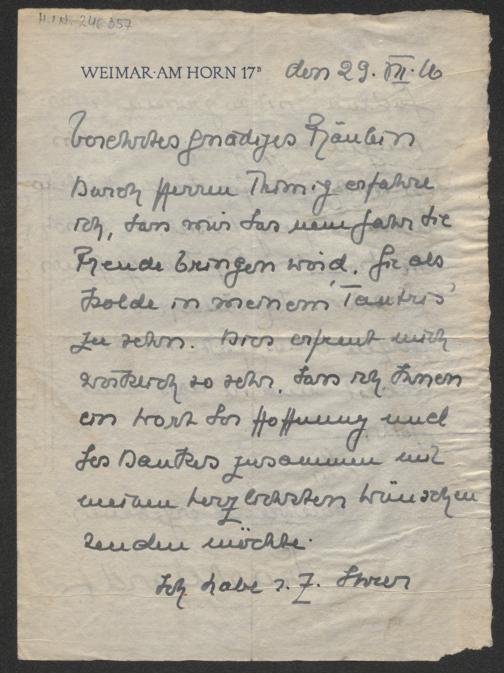 H.I.N. 246 357
WEIMAR·AM HORN 17ᴮ den 29. XII. 16
Verehrtes gnädiges Fräulein
Durch Herrn Thimig erfahre
ich, dass mir das neue Jahr die
Freude bringen wird, Sie als
Isolde in meinem 'Tantris'
zu sehn. Dies erfreut mich
wirklich so sehr, dass ich Ihnen
ein Wort der Hoffnung und
des Dankes zusammen mit
meinen herzlichsten Wünschen
senden möchte.
Ich habe s. Z.